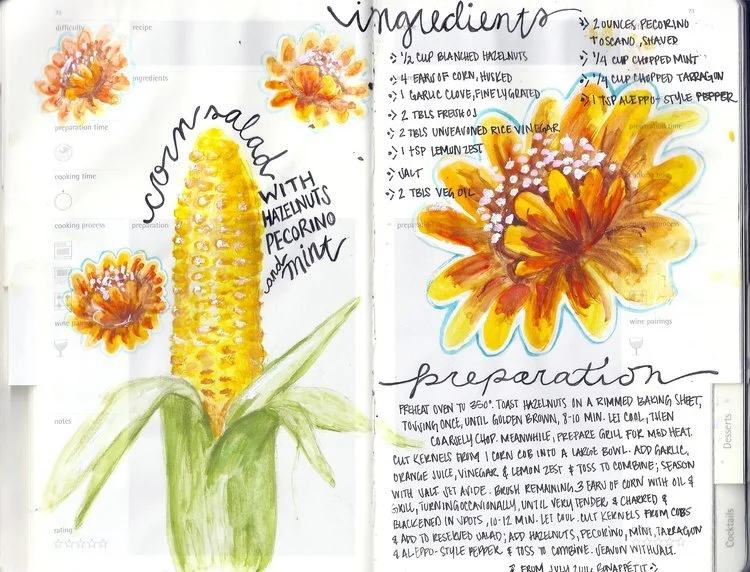 73
difficulty
recipe
ingredients
preparation time
cooking time
cooking process
preparation
wine pairings
notes
rating
corn salad
WITH
HAZELNUTS
PECORINO
and mint
ingredients
73
→ 1/2 CUP BLANCHED HAZELNUTS
→ 4 EARS OF CORN, HUSKED
→ 1 GARLIC CLOVE, FINELY GRATED
→ 2 TBLS FRESH OJ
→ 2 TBLS UNSEASONED RICE VINEGAR
→ 1 tSP LEMON ZEST
→ SALT
→ 2 TBLS VEG OIL
→ 2 OUNCES PECORINO
TOSCANO, SHAVED
→ 1/4 CUP CHOPPED MINT
→ 1/4 CUP CHOPPED TARRAGON
→ 1 TSP ALEPPO-STYLE PEPPER
preparation time
cooking time
wine pairings
preparation
PREHEAT OVEN TO 350°. TOAST HAZELNUTS IN A RIMMED BAKING SHEET,
TOSSING ONCE, UNTIL GOLDEN BROWN, 8-10 MIN. LET COOL, THEN
COARSELY CHOP. MEANWHILE, PREPARE GRILL FOR MED HEAT.
CUT KERNELS FROM 1 CORN COB INTO A LARGE BOWL. ADD GARLIC,
ORANGE JUICE, VINEGAR & LEMON ZEST & TOSS TO COMBINE; SEASON
WITH SALT. SET ASIDE. BRUSH REMAINING 3 EARS OF CORN WITH OIL &
GRILL, TURNING OCCASIONALLY, UNTIL VERY TENDER & CHARRED &
BLACKENED IN SPOTS, 10-12 MIN. LET COOL. CUT KERNELS FROM COBS
& ADD TO RESERVED SALAD; ADD HAZELNUTS, PECORINO, MINT, TARRAGON
& ALEPPO-STYLE PEPPER & TOSS TO COMBINE. SEASON WITH SALT.
& FROM JULY 2016 BONAPPÉTIT
Desserts
Cocktails